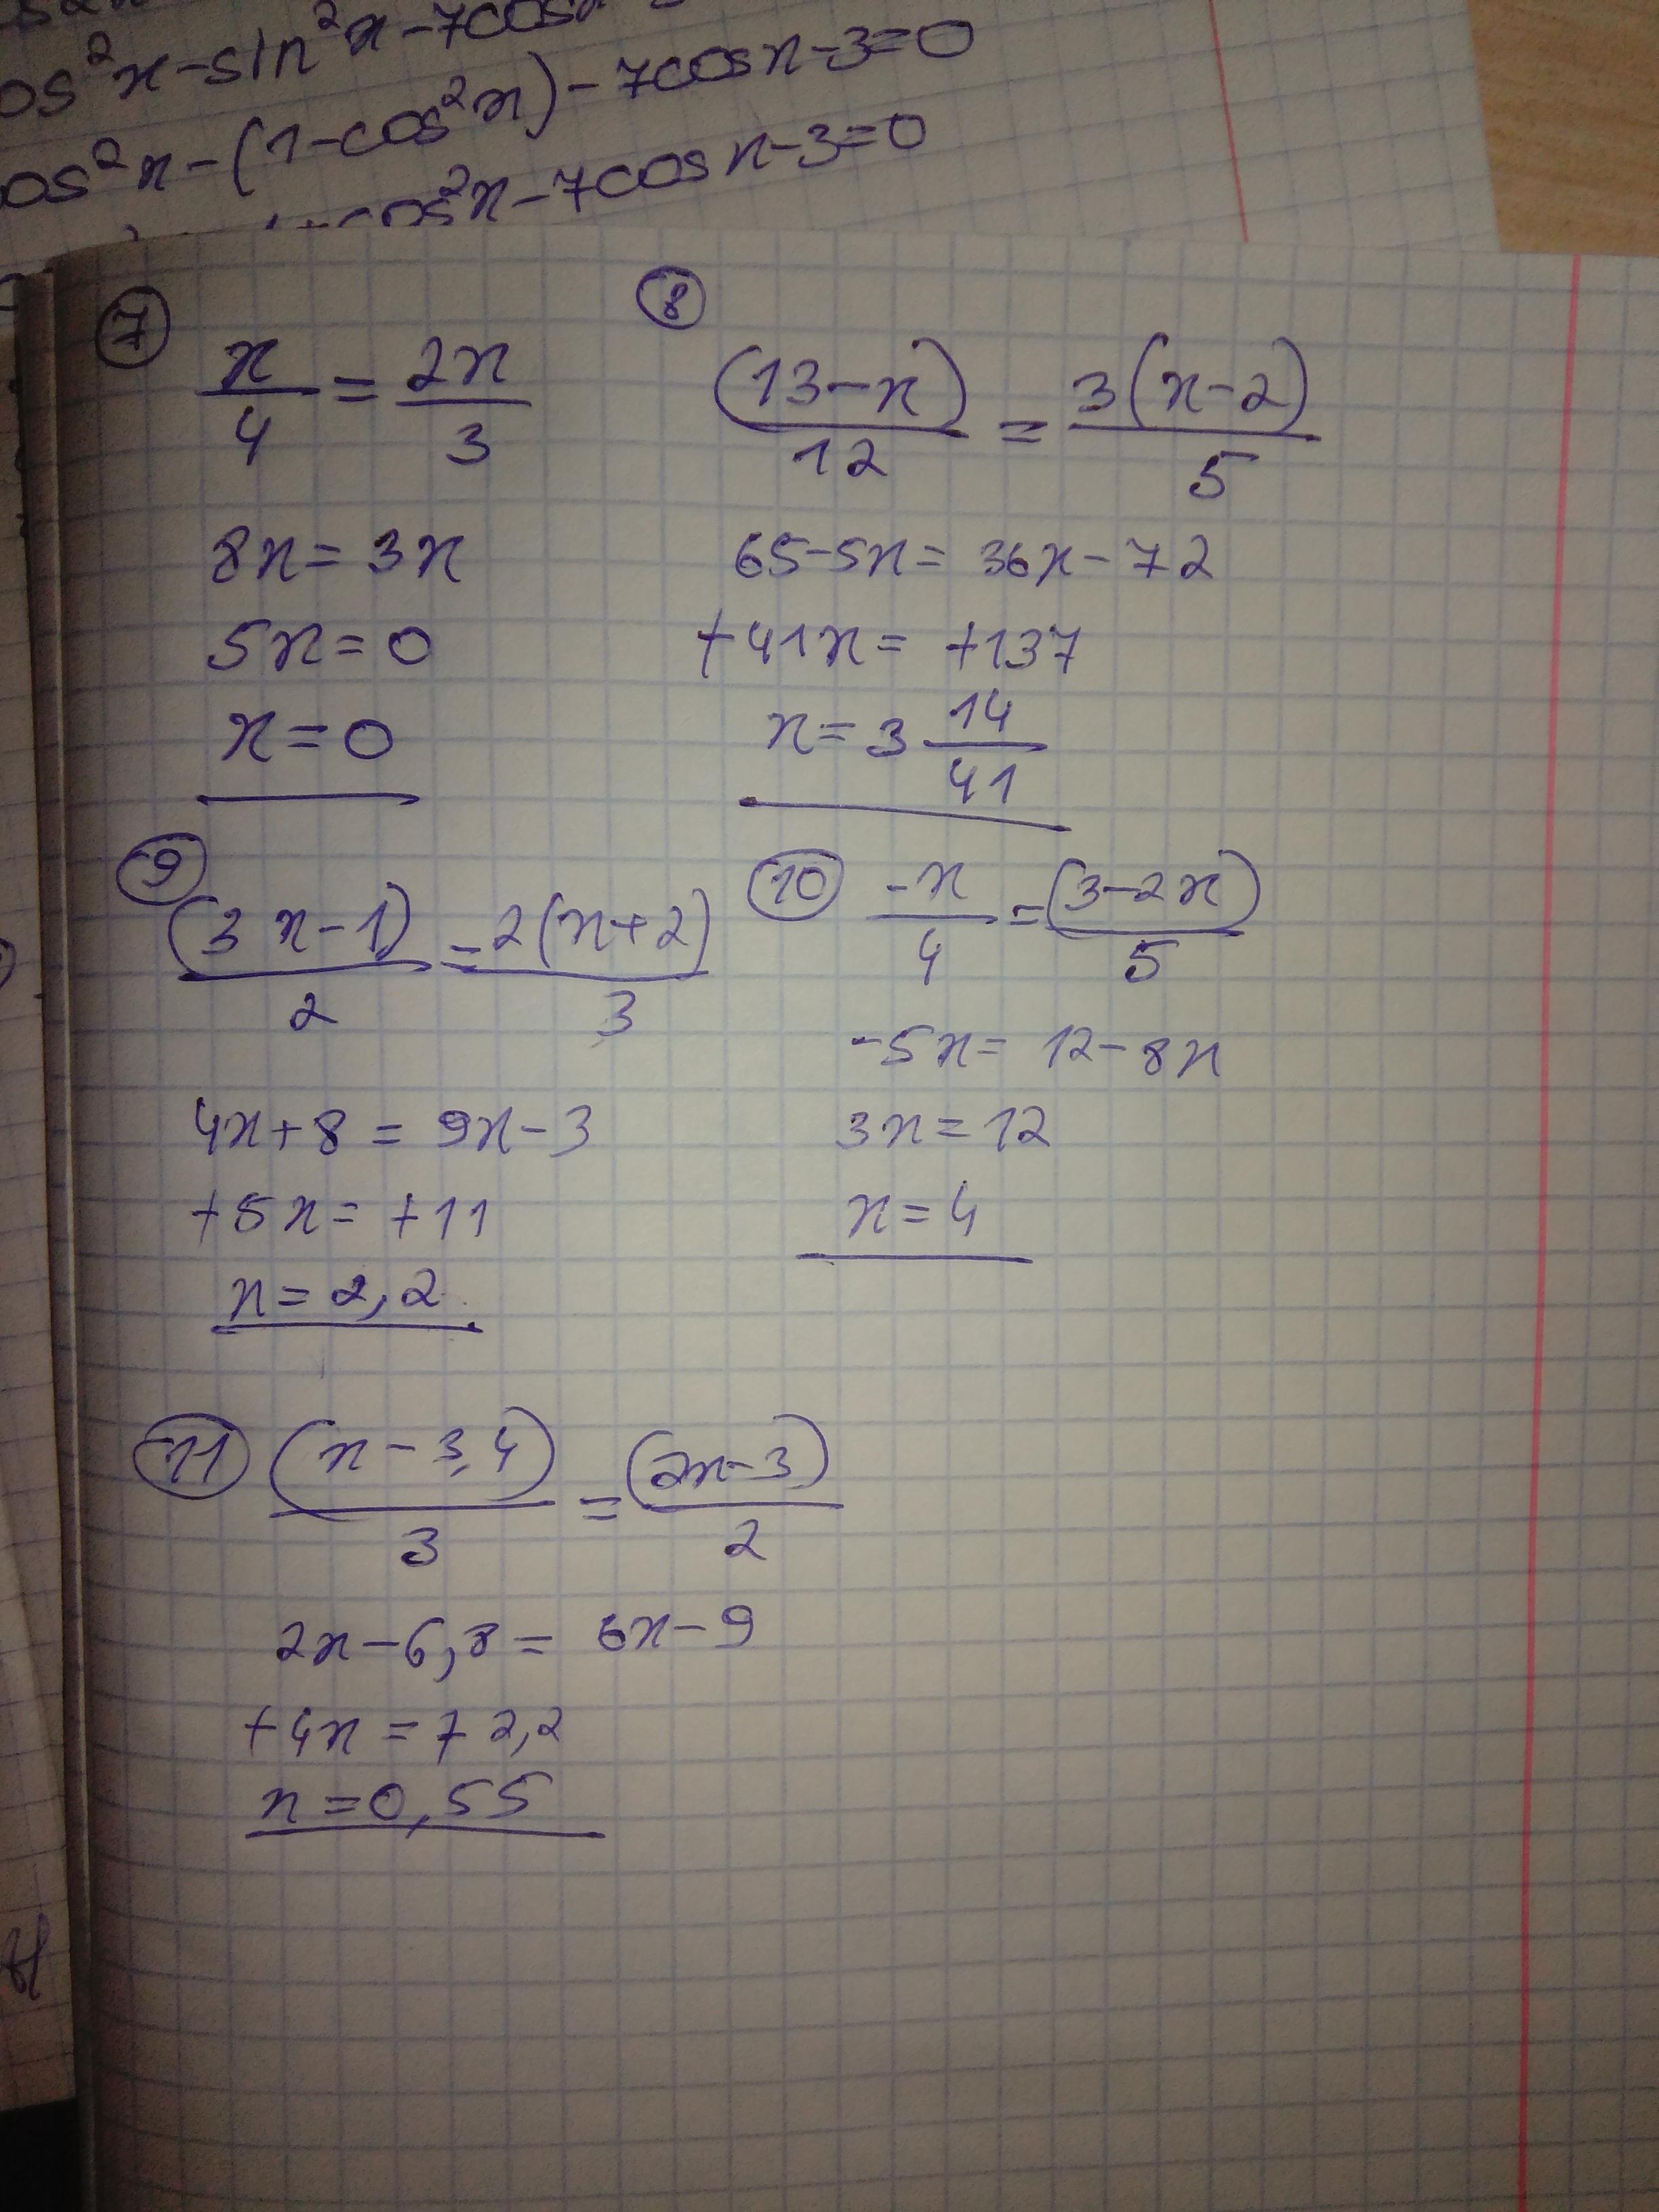 cos²x-sin²x-7cosx
cos²x-(1-cos²x)-7cosx-3=0
cos²x-7cosx-3=0
7
x/4 = 2x/3
8x=3x
5x=0
x=0
8
(13-x)/12 = 3(x-2)/5
65-5x=36x-72
+41x=+137
x=3 14/41
9
(3x-1)/2 = 2(x+2)/3
4x+8=9x-3
+5x=+11
x=2,2
10
-x/4 = (3-2x)/5
-5x=12-8x
3x=12
x=4
11
(x-3,4)/3 = (2x-3)/2
2x-6,8=6x-9
+4x=+2,2
x=0,55